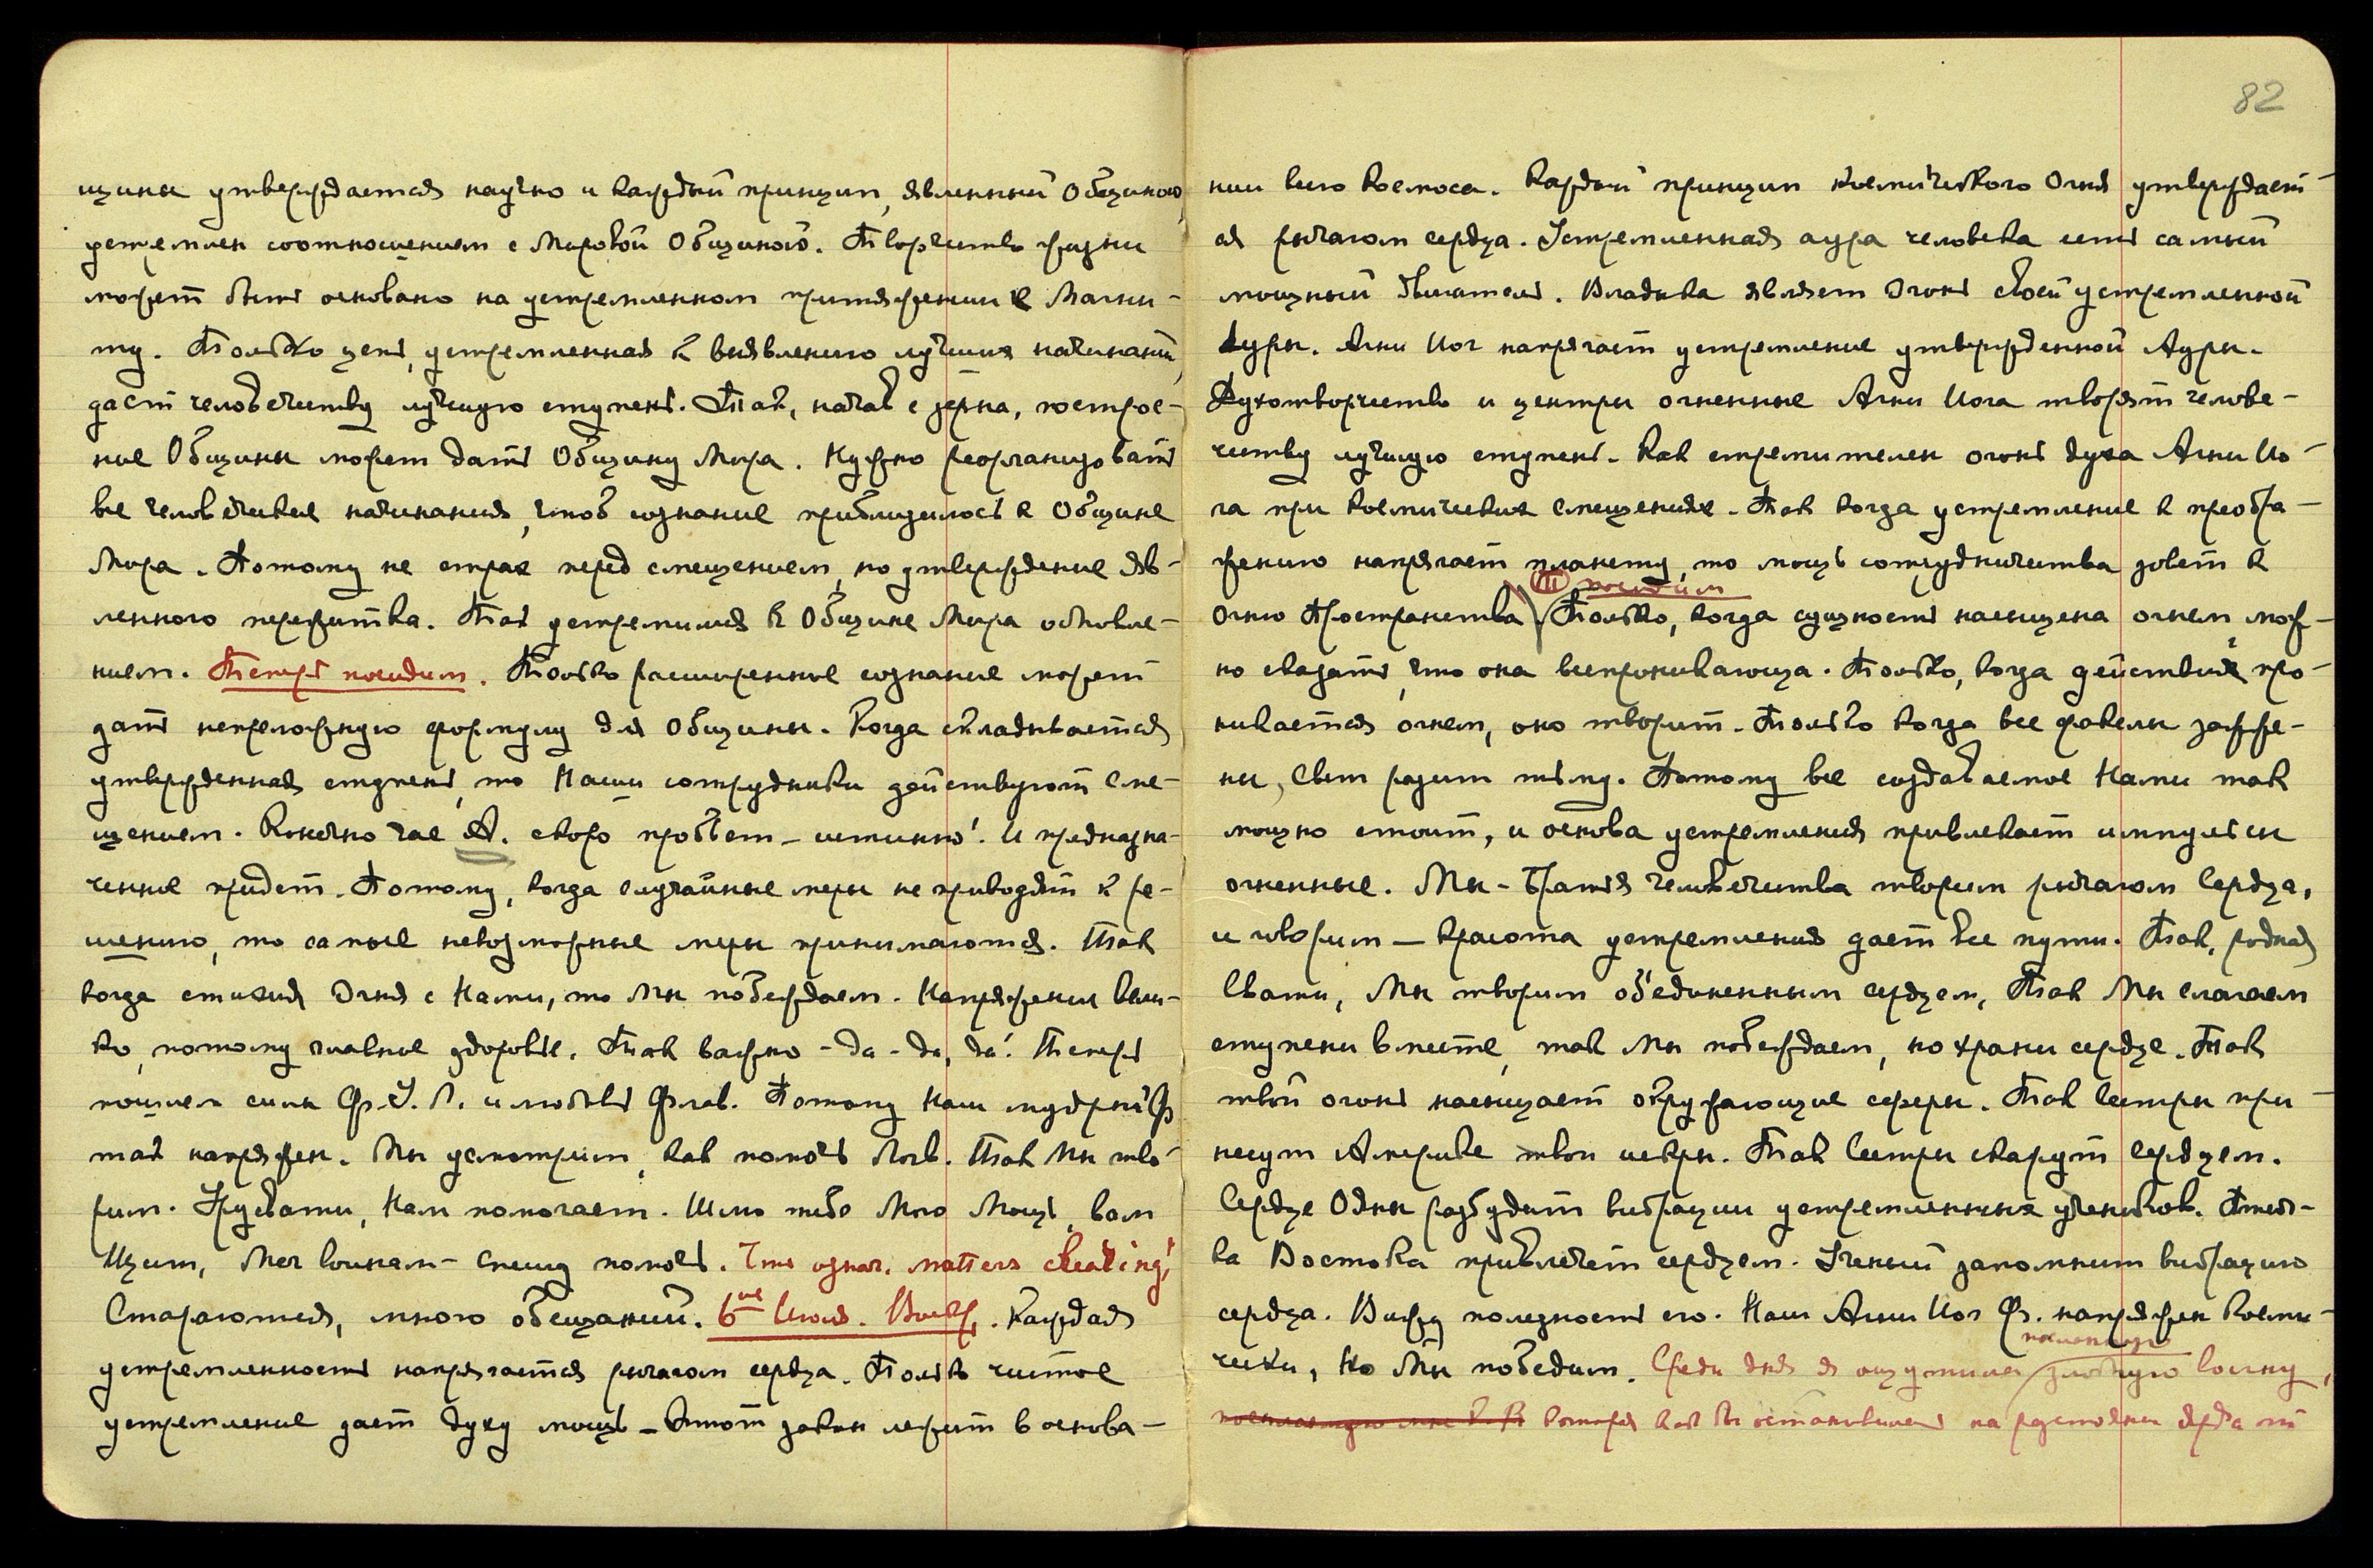 щины утверждается научно и каждый принцип, явленный Общиною,
устремлен соотношением с Мировой Общиной. Творчество жизни
может быть основано на устремленном притяжении к Магни-
ту. Только цепь, устремленная к выявлению лучших начинаний,
даст человечеству лучшую ступень. Так, начав с зерна, построе-
ние Общины может дать Общину Мира. Нужно реорганизовать
все человеческие начинания, чтоб сознание приблизилось к Общине
Мира. Потому не страх перед смещением, но утверждение яв-
ленного пережитка. Так устремимся к Общине Мира обновле-
нием. Теперь последим. Только расширенное сознание может
дать непреложную формулу для Общины. Когда складывается
утвержденная ступень, то Наши сотрудники действуют сме-
щением. Конечно час А. скоро пробьет – истинно! И предназна-
ченное придет. Потому, когда случайные меры не приводят к ре-
шению, то самые невозможные меры принимаются. Так
когда стихия Огня с Нами, то Мы побеждаем. Напряжение вели-
ко, потому главное здоровье. Так важно – да – да, да! Теперь
пошлем силы Ф. У. Л. и любовь Флав. Потому Наш мудрый Ф
так напряжен. Мы усмотрим, как помочь Логв. Так Мы тво-
рим. Урусвати, Нам помогает. Шлю тебе Мою Мощь, вам
Щит, Меч воинам – спешу помочь. Что означ. matters
Стараются, много обещаний. 6ое Июля. Каждая
устремленность напрягается рычагом сердца. Только чистое
устремление дает духу мощь – Этот закон лежит в основа-
82
нии всего Космоса. Каждый принцип космического Огня утверждает-
ся рычагом сердца. Устремленная аура человека есть самый
мощный двигатель. Владыка являет Огонь своей устремленной
Ауры. Агни Йог напрягает устремление утвержденной Ауры.
Духотворчество и центры огненные Агни Йога творят челове-
честву лучшую ступень. Как стремителен огонь духа Агни Йо-
га при космических смещениях. Так когда устремление к преобра-
жению напрягает планету, то мощь сотрудничества зовет к
III последим
Огню Пространства. Только, когда сущность насыщена огнем, мож-
но сказать, что она всепроникающа. Только, когда действие про-
никается огнем, оно творит. Только когда все факелы зажже-
ны, Свет разит тьму. Потому все создаваемое Нами так
мощно стоит, и основа устремления привлекает импульсы
огненные. Мы – Братья Человечества творим рычагом Сердца,
и говорим – Красота устремления дает все пути. Так, родная
Свати, Мы творим объединенным сердцем, Так Мы слагаем
ступени вместе, так Мы побеждаем, но храни сердце. Так
твой огонь насыщает окружающие сферы. Так Сестры при-
несут Америке твои искры. Так Сестры скажут Сердцем.
Сердце Одны разбудит вибрации устремленных учеников.
ка Востока привлечет сердцем. Ученый запомнит вибрацию
сердца. Вижу полезность его. Наш Агни Йог Ф. напряжен косми-
чески, Но Мы победим. Среди дня я ощутила злобную волну,
посланную
которая как бы остановилась на расстоянии